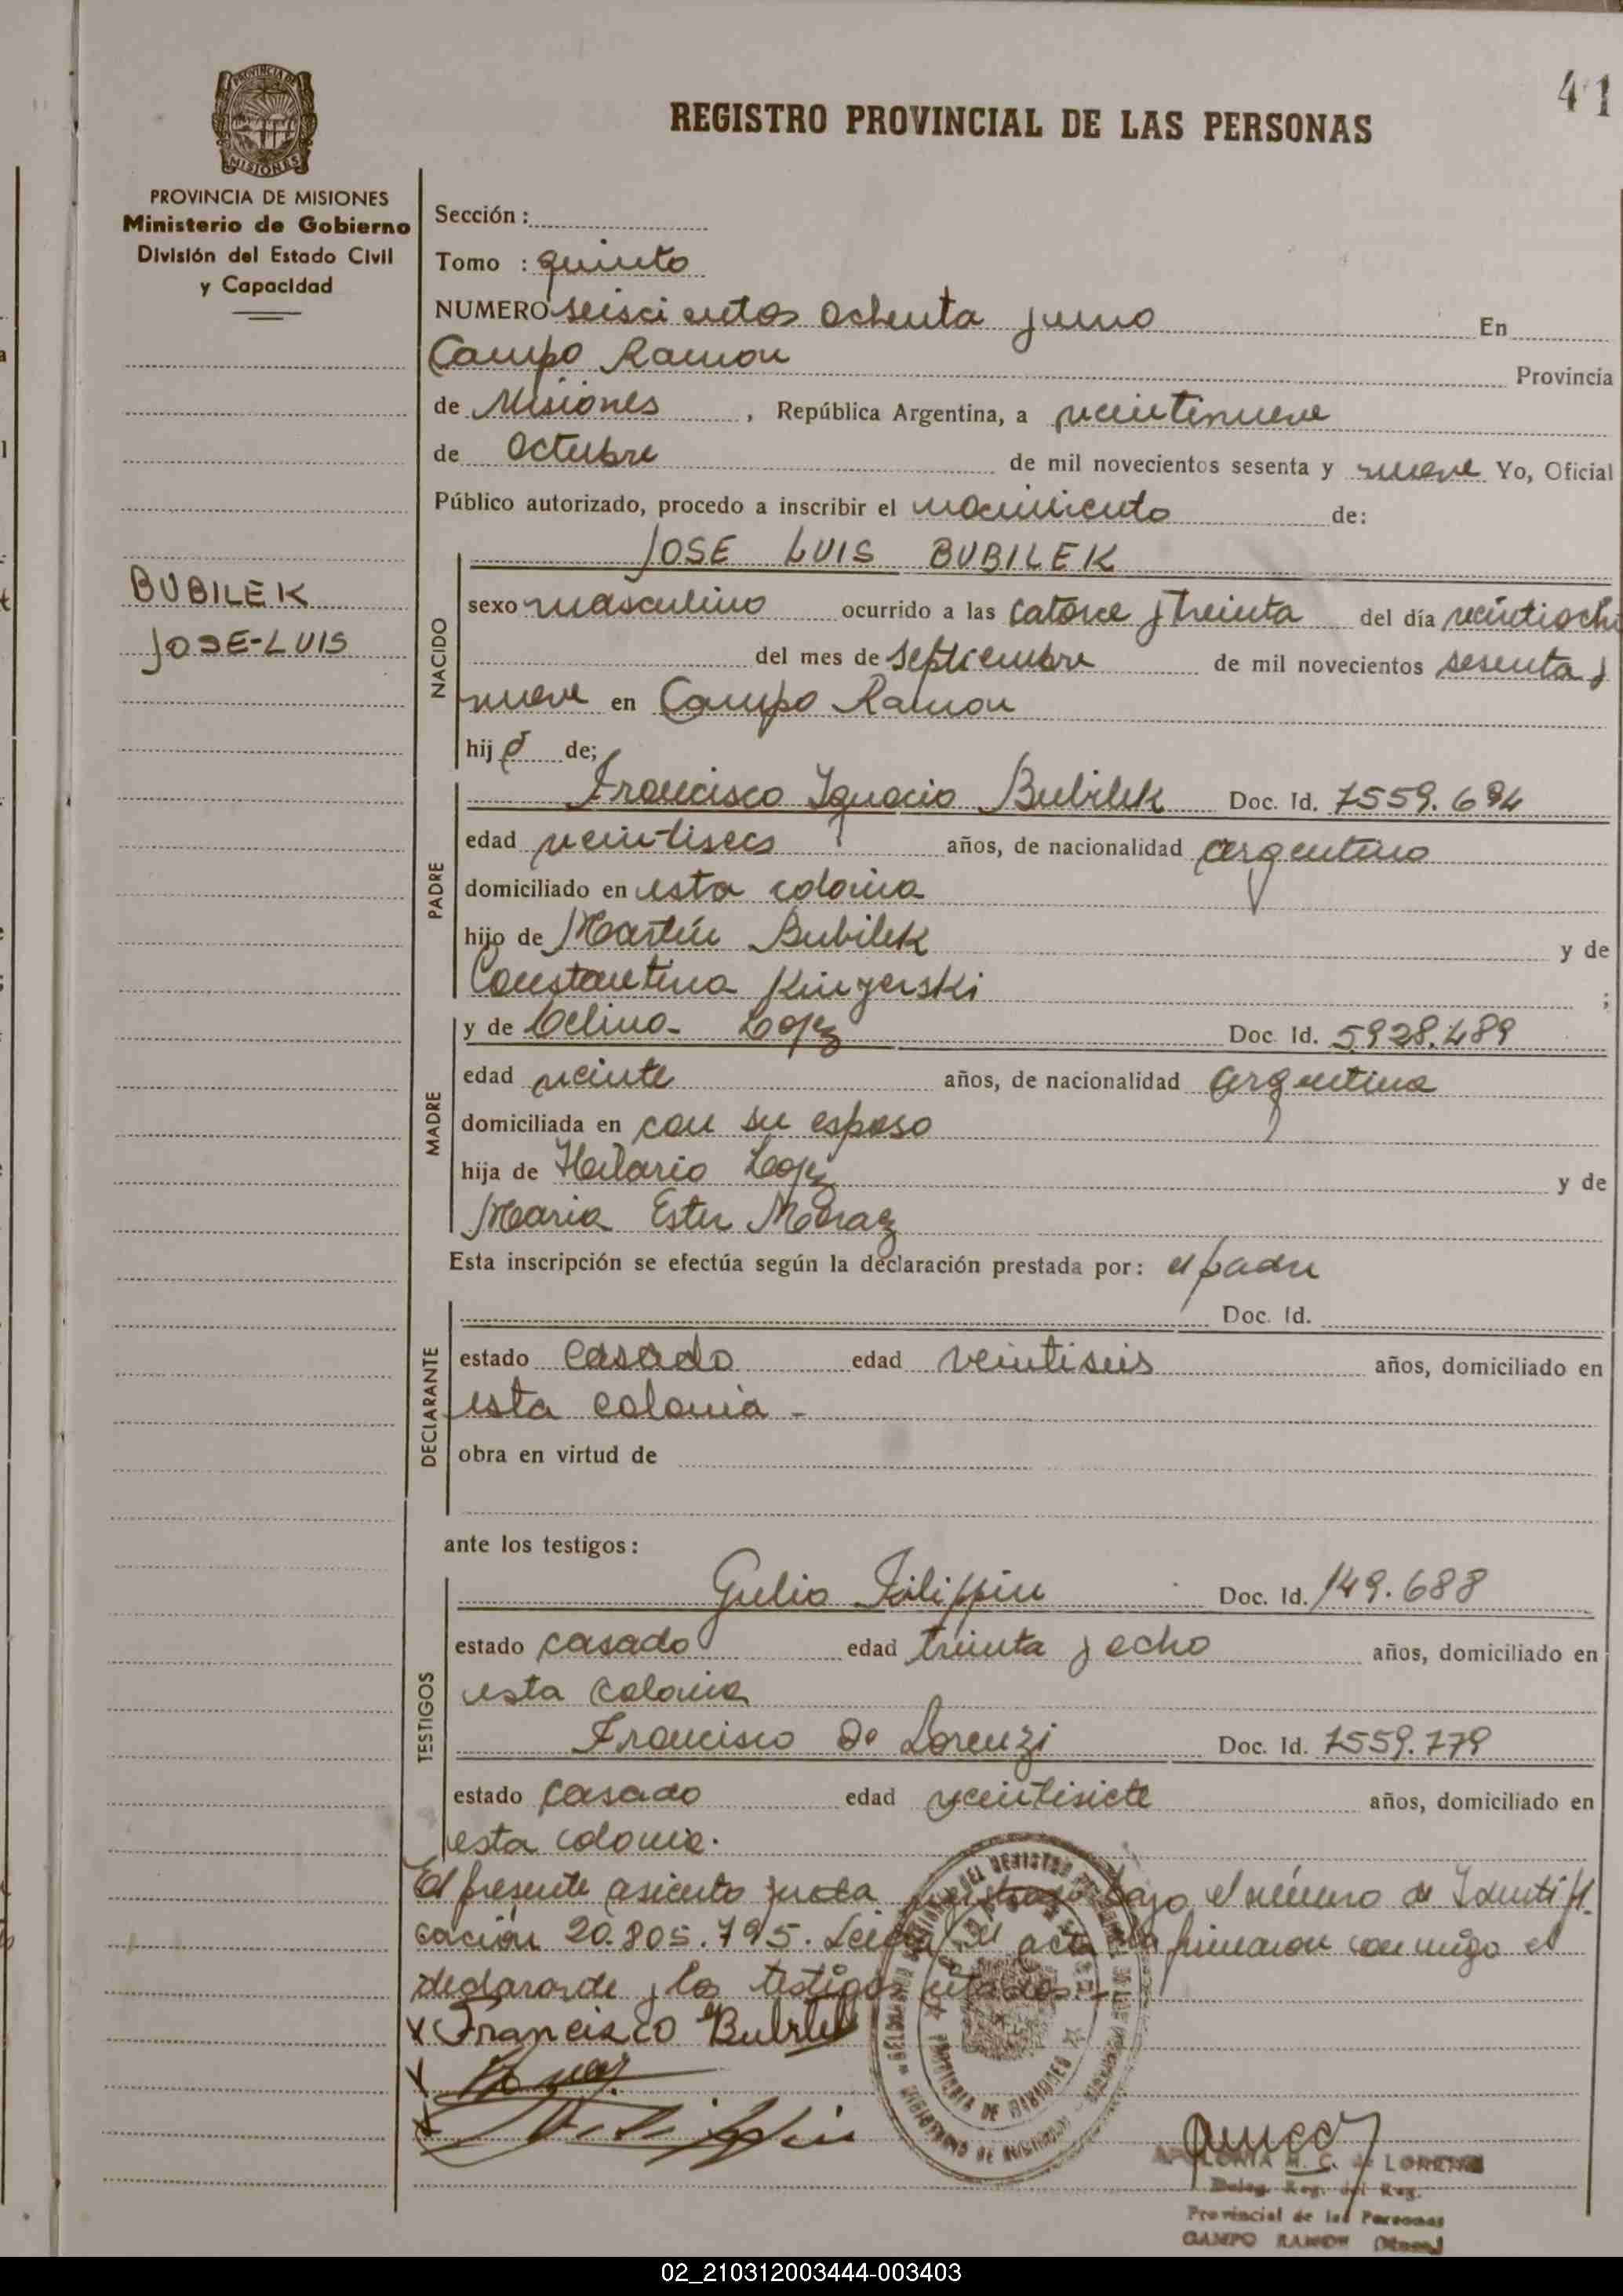 41
REGISTRO PROVINCIAL DE LAS PERSONAS
PROVINCIA DE MISIONES
Ministerio de Gobierno
División del Estado Civil
y Capacidad
Sección :
Tomo : quinto
NUMERO seiscientos ochenta y uno En
Campo Ramon Provincia
de Misiones , República Argentina, a veintinueve
de Octubre de mil novecientos sesenta y nueve Yo, Oficial
Público autorizado, procedo a inscribir el nacimiento de:
JOSE LUIS BUBILEK
BUBILEK
JOSE-LUIS
NACIDO
sexo masculino ocurrido a las catorce y treinta del día veintiocho
del mes de septiembre de mil novecientos sesenta y
nueve en Campo Ramon
hijo de;
PADRE
Francisco Ignacio Bubilek Doc. Id. 7559.694
edad veintiseis años, de nacionalidad argentino
domiciliado en esta colonia
hijo de Martín Bubilek y de
Constantina ;
MADRE
y de Celina Lopez Doc. Id. 5928.489
edad veinte años, de nacionalidad argentina
domiciliada en con su esposo
hija de Hilario Lopez y de
Maria Ester
Esta inscripción se efectúa según la declaración prestada por: el padre
Doc. Id.
DECLARANTE
estado casado edad veintiseis años, domiciliado en
esta colonia -
obra en virtud de
ante los testigos:
TESTIGOS
Gulio Filippin Doc. Id. 149.688
estado casado edad treinta y ocho años, domiciliado en
esta colonia
Francisco De Lorenzi Doc. Id. 7559.779
estado casado edad veintisiete años, domiciliado en
esta colonia.
El presente asiento queda bajo el número de Identifi
cación 20.805.795. Leida el acta la firmaron conmigo el
declarante y los testigos citados.-
x Francisco Bubilek
x
x
PROVINCIA DE MISIONES
M. C. de LORENZI
Deleg. Reg. del Reg.
Provincial de las Personas
CAMPO RAMON (Mnes)
02_210312003444-003403